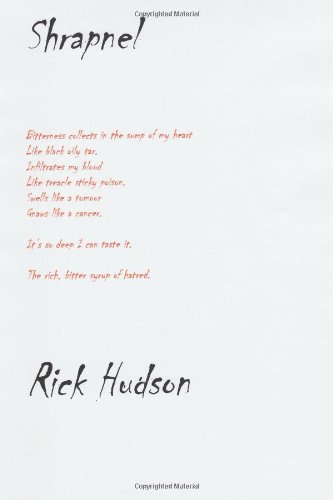 Copyrighted Material
Shrapnel
Bitterness collects in the sump of my heart
Like black oily tar.
Infiltrates my blood
Like treacle sticky poison.
Swells like a tumour
Gnaws like a cancer.
It's so deep I can taste it.
The rich, bitter syrup of hatred.
Rick Hudson
Copyrighted Material